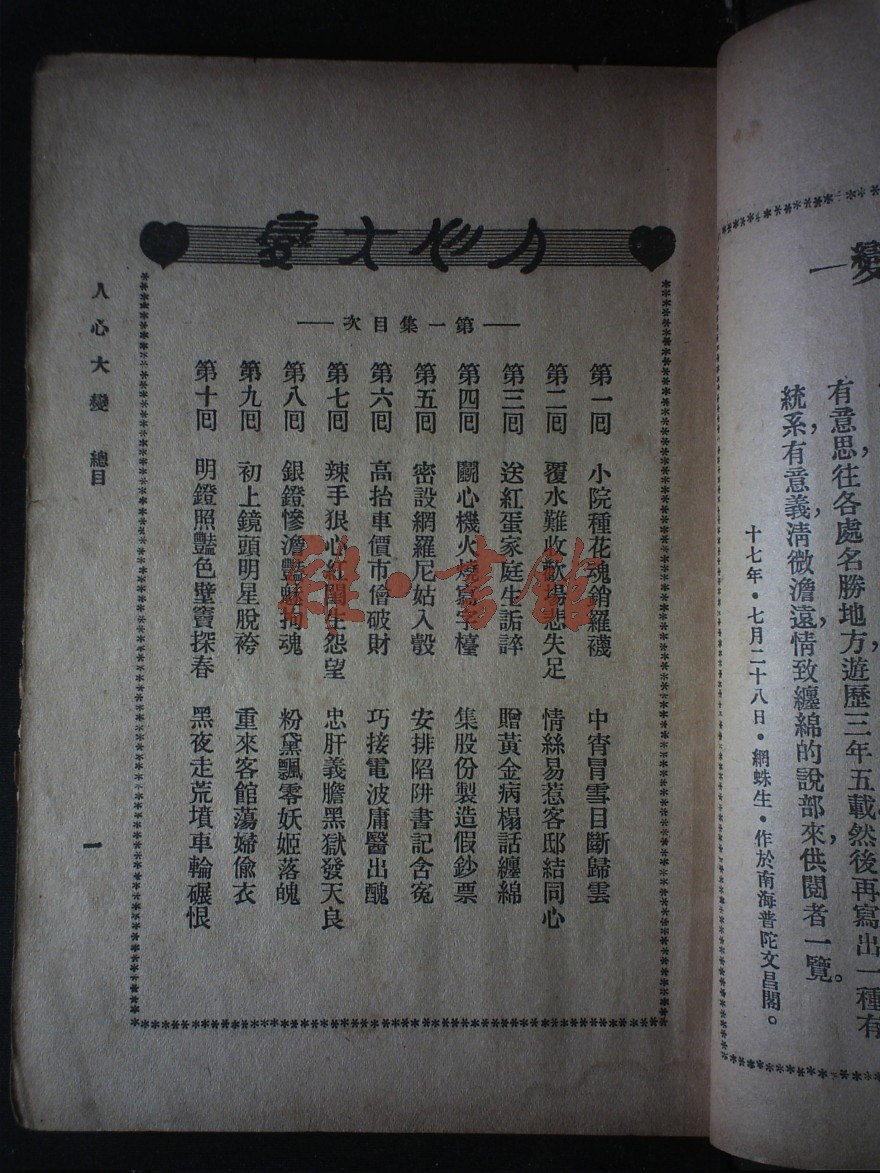 變
一
有意思往各處名勝地方遊歷三年五載然後再寫出一種有
統系，有意義，清微澹遠，情致纏綿的說部來，供閱者一覽。
十七年•七月二十八日•網蛛生•作於南海普陀文昌閣。
人心大變
第一集目次
第一囘　小院種花魂銷羅襪　中宵冒雪目斷歸雲
第二囘　覆水難收歡場悲失足　情絲易惹客邸結同心
第三囘　送紅蛋家庭生詬誶　贈黃金病榻話纏綿
第四囘　鬭心機火燒寫字檯　集股份製造假鈔票
第五囘　密設網羅尼姑入彀　安排陷阱書記含寃
第六囘　高抬車價市儈破財　巧接電波庸醫出醜
第七囘　辣手狠心紅閨生怨望　忠肝義膽黑獄發天良
第八囘　銀鐙慘澹豔魅拘魂　粉黛飄零妖姬落魄
第九囘　初上鏡頭明星脫袴　重來客館蕩婦偸衣
第十囘　明鐙照豔色壁竇探春　黑夜走荒墳車輪碾恨
人心大變　總目
一
雜•書館